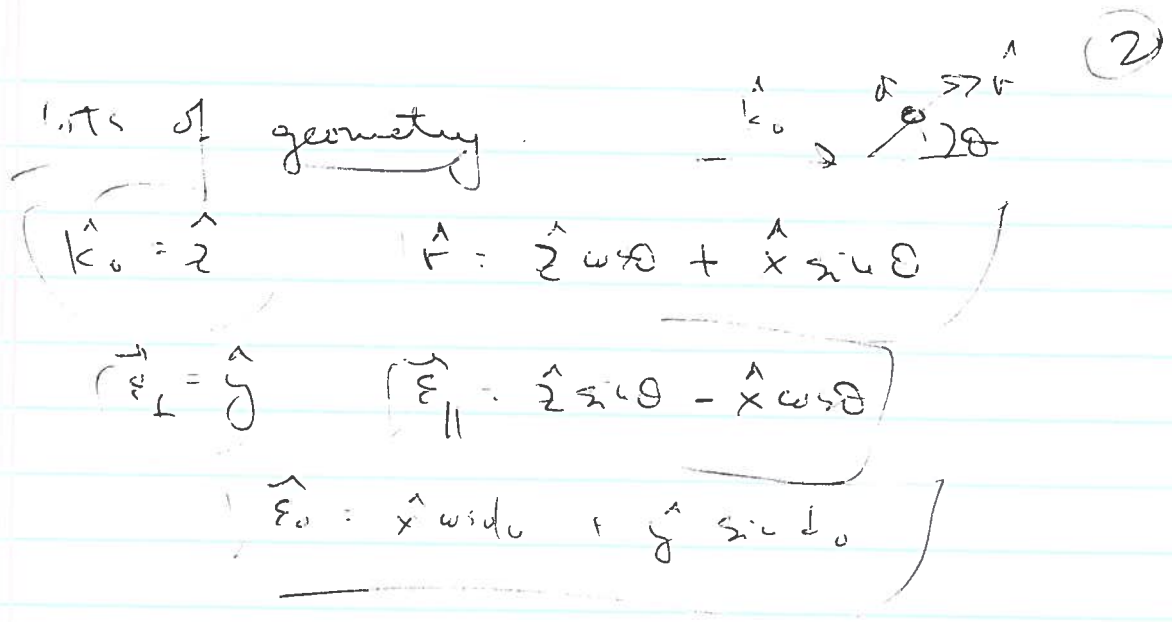 2
of geometry.
k̂₀ r̂ θ
k̂₀ = ẑ r̂ = ẑ cosθ + x̂ sinθ
ε⃗⊥ = ŷ ε⃗∥ = ẑ sinθ - x̂ cosθ
ε̂₀ = x̂ cosϕ₀ + ŷ sinϕ₀